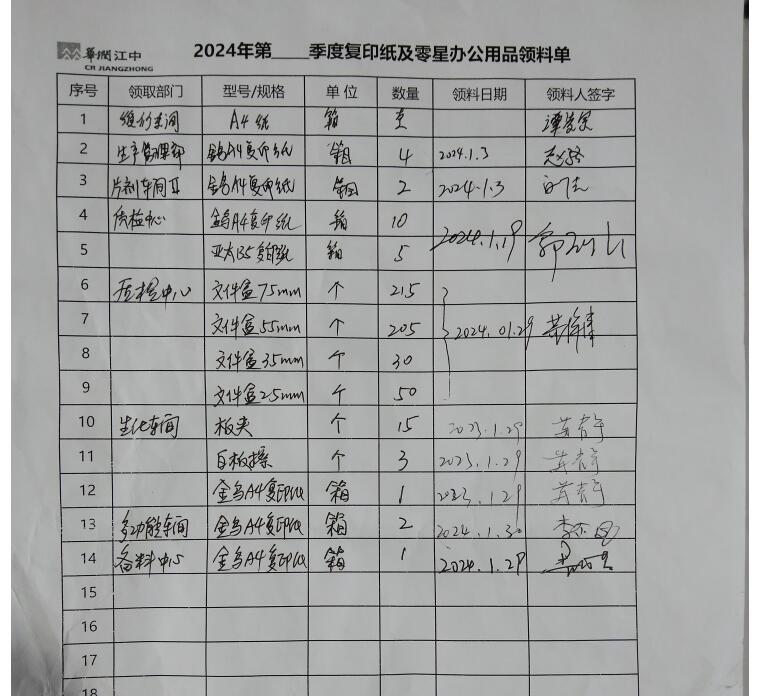 華潤江中
CR JIANGZHONG
2024年第____季度复印纸及零星办公用品领料单
序号 领取部门 型号/规格 单位 数量 领料日期 领料人签字
1 A4纸 箱
2 生产管理部 金乌A4复印纸 箱 4 2024.1.3
3 片剂车间II 金乌A4复印纸 箱 2 2024.1.3
4 质检中心 金乌A4复印纸 箱 10 2024.1.19
5 亚太B5复印纸 箱 5
6 质检中心 文件盒75mm 个 215
7 文件盒55mm 个 205 2024.01.29
8 文件盒35mm 个 30
9 文件盒25mm 个 50
10 生化车间 板夹 个 15 2023.1.29
11 白板擦 个 3 2023.1.29
12 金乌A4复印纸 箱 1 2023.1.29
13 多功能车间 金乌A4复印纸 箱 2 2024.1.30
14 备料中心 金乌A4复印纸 箱 1 2024.1.29
15
16
17
18